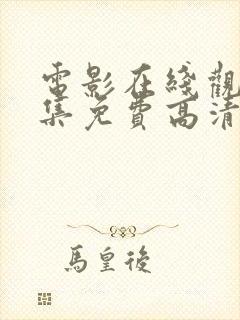 電影在綫觀
集免費高清
馬皇後